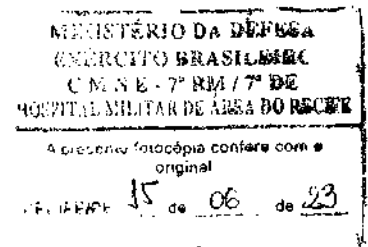 MINISTÉRIO DA DEFESA
EXÉRCITO BRASILEIRO
C M N E - 7ª RM / 7ª DE
HOSPITAL MILITAR DE ÁREA DO RECIFE
A presente fotocópia confere com o
original
RECIFE/PE 15 de 06 de 23